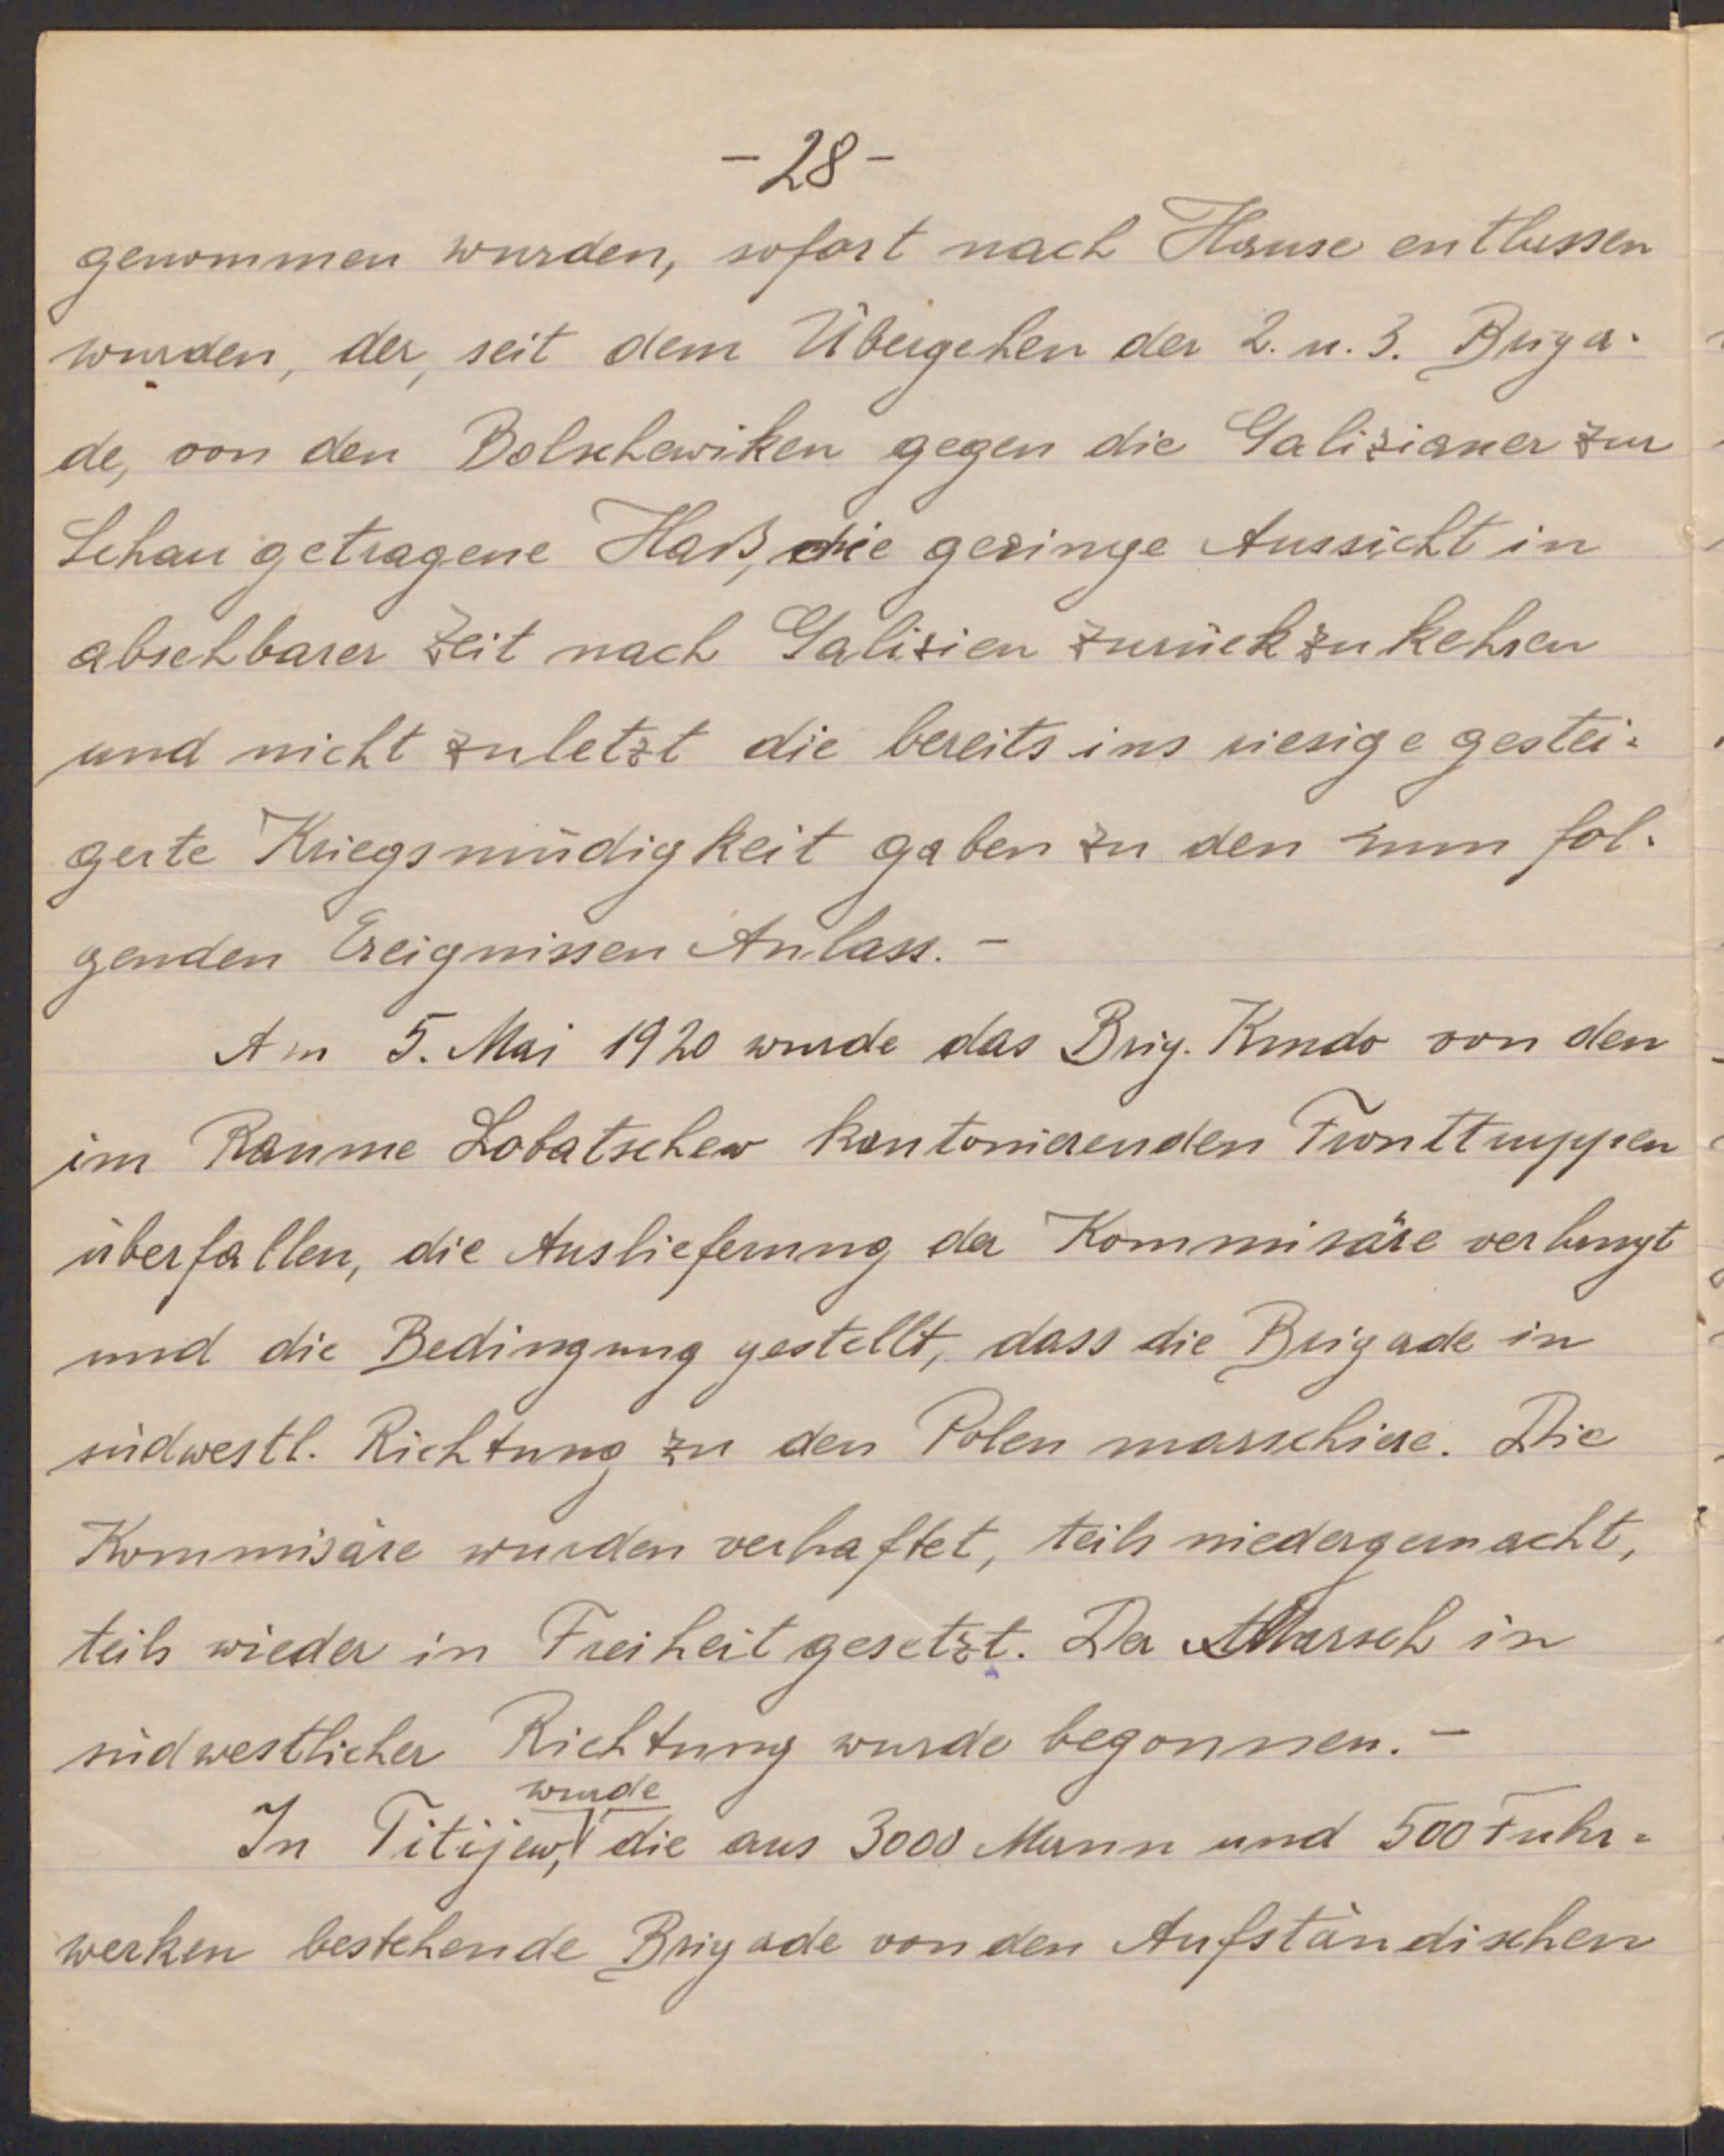 - 28 -
genommen wurden, sofort nach Hause entlassen
wurden, der, seit dem Übergehen der 2. u. 3. Briga-
de, von den Bolschewiken gegen die Galizianer zur
Schau getragene Haß, die geringe Aussicht in
absehbarer Zeit nach Galizien zurückzukehren
und nicht zuletzt die bereits ins riesige gestei-
gerte Kriegsmüdigkeit gaben zu den nun fol-
genden Ereignissen Anlass. -
Am 5. Mai 1920 wurde das Brig. Kmdo von den
im Raume Lobatschew kantonierenden Fronttruppen
überfallen, die Auslieferung der Kommisäre verlangt
und die Bedingung gestellt, dass die Brigade in
südwestl. Richtung zu den Polen marschiere. Die
Kommisäre wurden verhaftet, teils niedergemacht,
teils wieder in Freiheit gesetzt. Der Marsch in
südwestlicher Richtung wurde begonnen. -
wurde
In Titijew, die aus 3000 Mann und 500 Fuhr-
werken bestehende Brigade von den Aufständischen